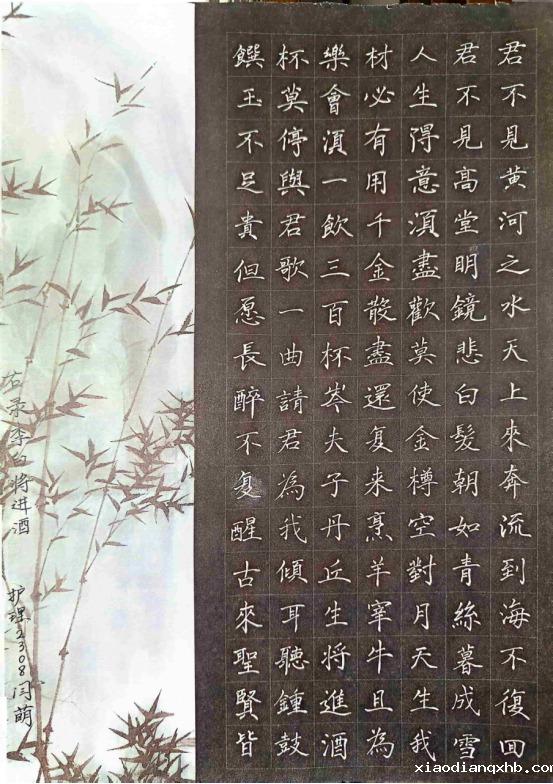 君不見黄河之水天上來奔流到海不復回
君不見髙堂明鏡悲白髮朝如青絲暮成雪
人生得意湏盡歡莫使金樽空對月天生我
材必有用千金散盡還复来烹羊宰牛且為
樂會湏一飲三百杯岑夫子丹丘生将進酒
杯莫停與君歌一曲請君為我傾耳聽鍾鼓
饌玉不足貴但愿長醉不复醒古來聖賢皆
右录李白将进酒
护理2308闫萌
xiaodianqxhb.com